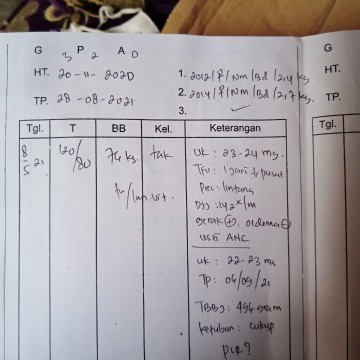 G 3 P 2 A 0
HT. 20 - 11 - 2020
TP. 28 - 08 - 2021
1. 2012 / ♀ / Nm / Bd / 2,4 kg
2. 2014 / ♀ / Nm / Bd / 2,7 kg.
3.
Tgl. T BB Kel. Keterangan
8/5 21 120/80 74 kg. tak
UK : 23 - 24 mg.
TFU : 1 jari ↓ pusat
Pres : lintang
DJJ : 142 x/m
gerak (+), oedema (-)
USG ANC
UK : 22 - 23 mg
TP : 06/09/21
TBBJ : 496 gram
Ketuban : cukup
G
HT.
TP.
Tgl.